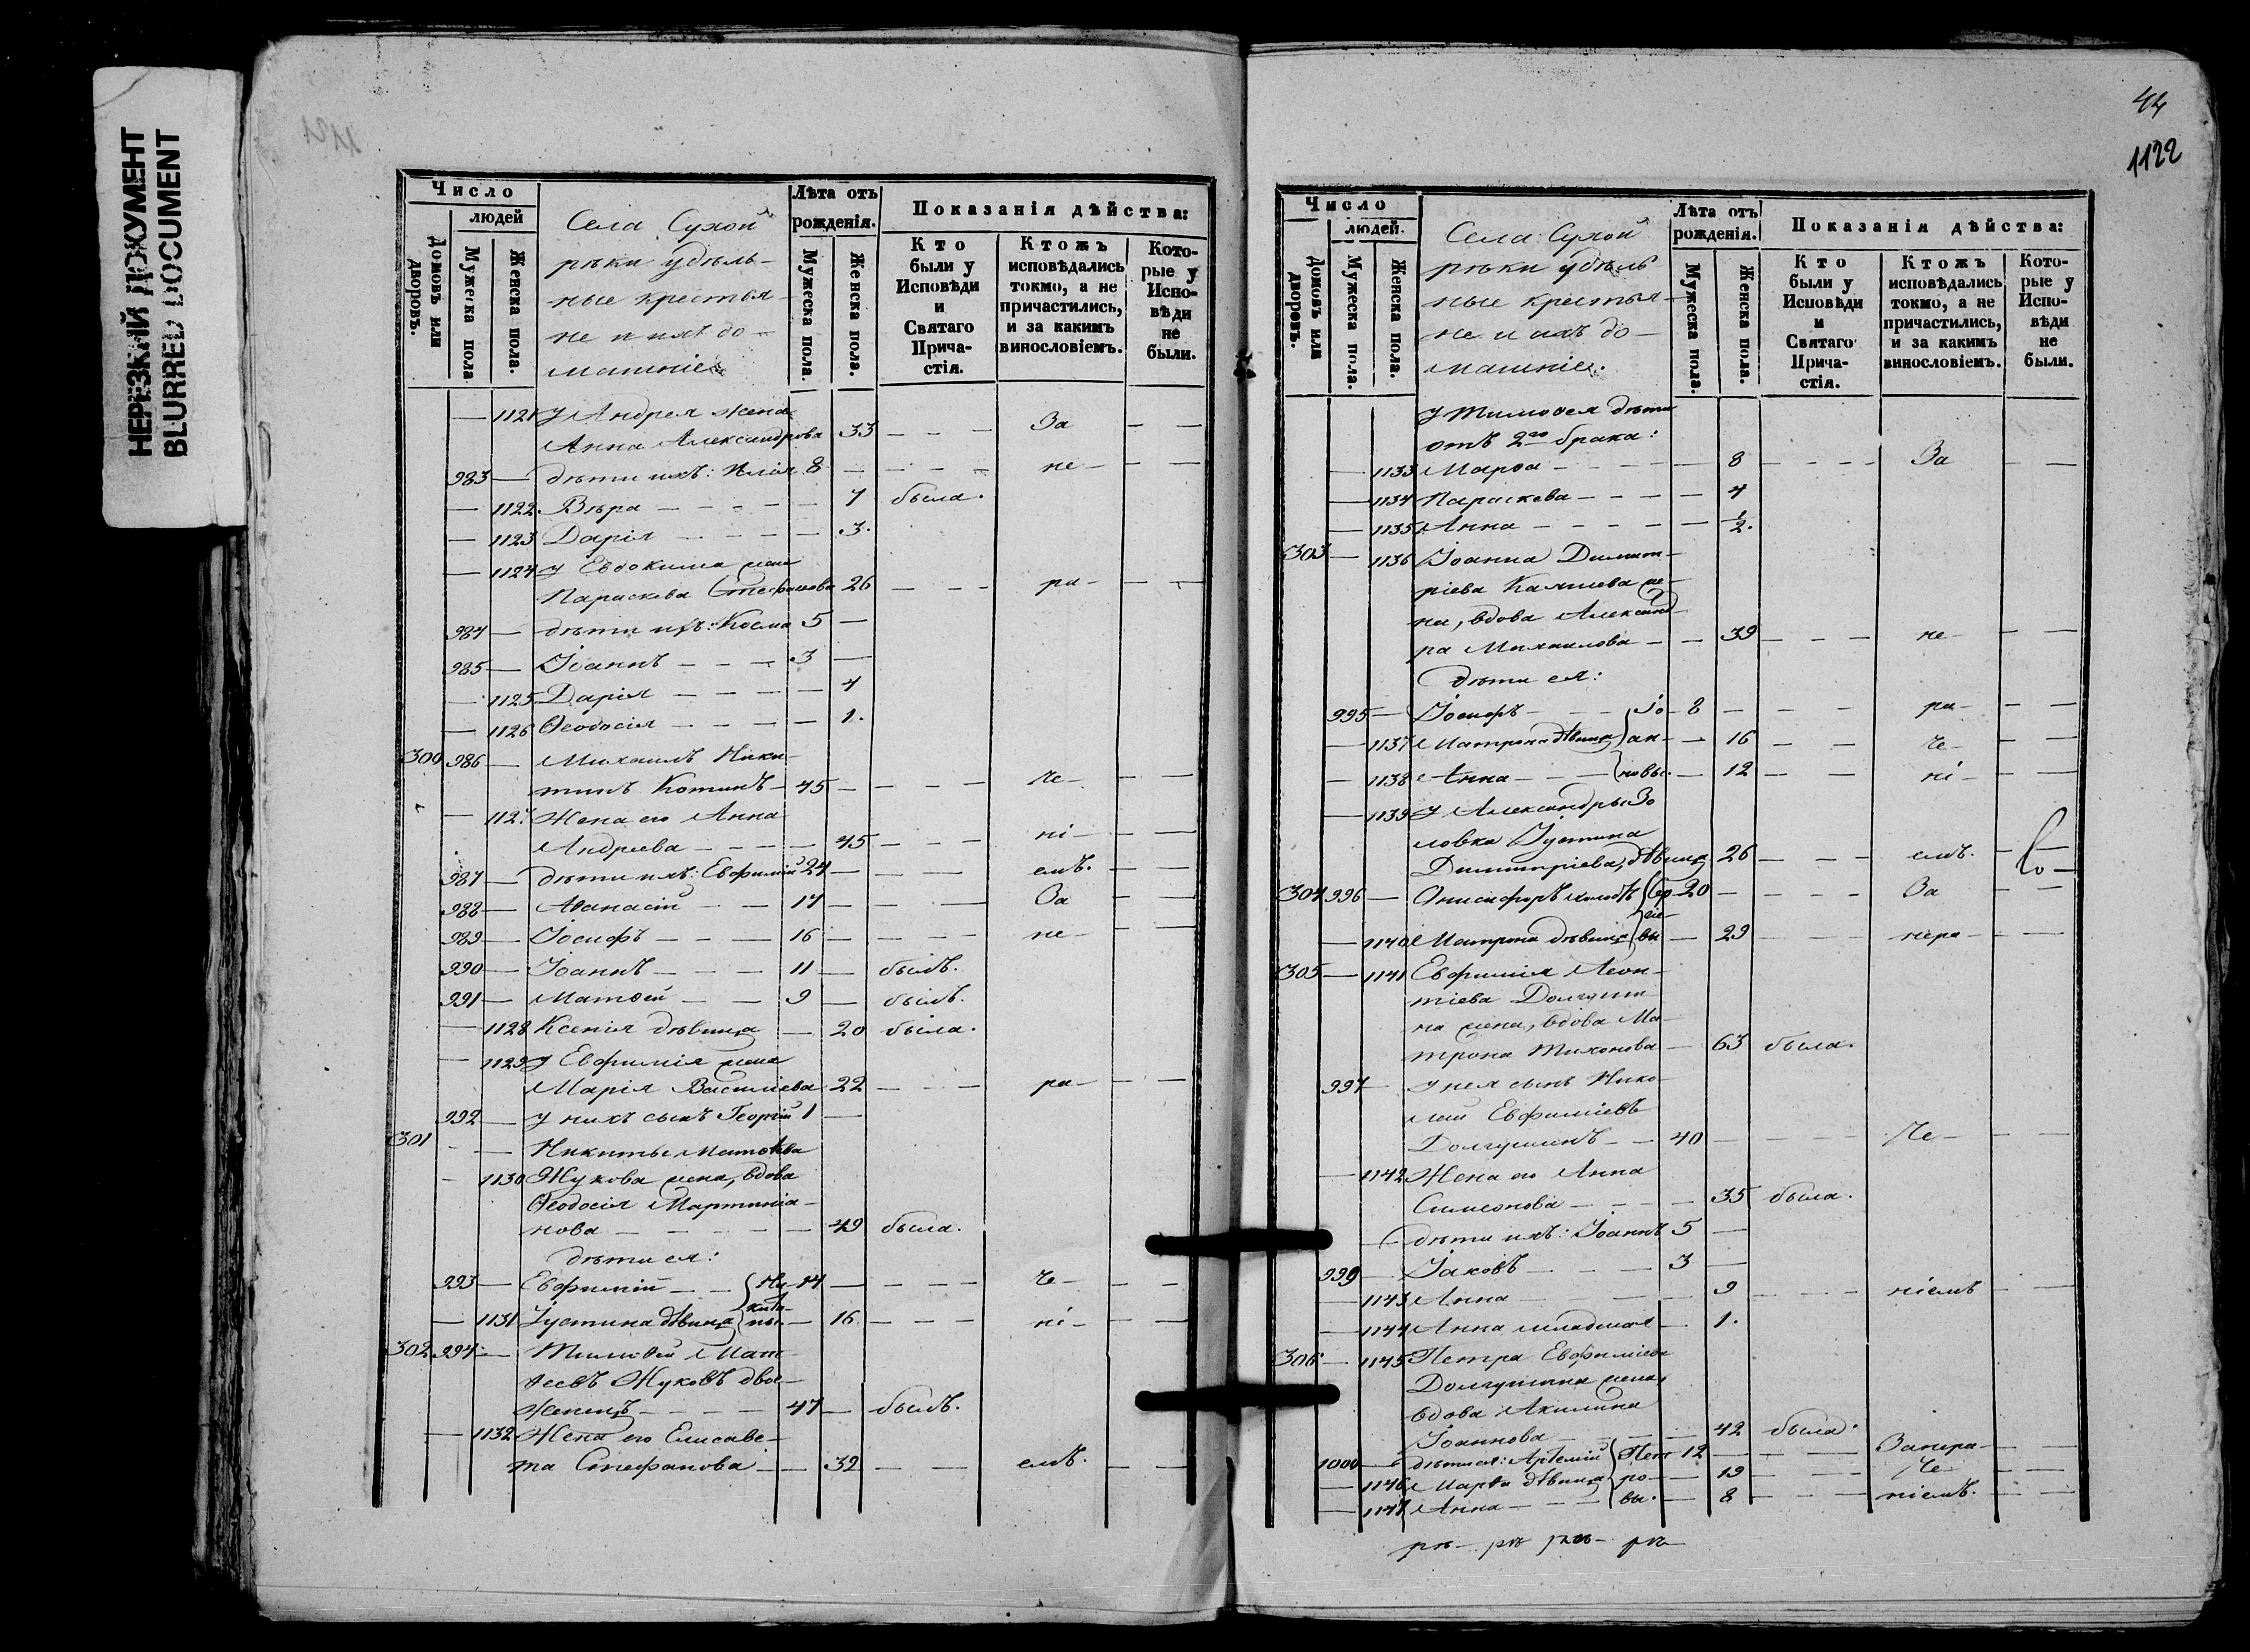 НЕРЕЗКИЙ ДОКУМЕНТ
BLURRED DOCUMENT
1121
Число
людей
Домовъ или дворовъ.
Мужеска пола
Женска пола.
Села Сухой
рѣки удѣль-
ные крестья-
не и ихъ до-
машніе
Лѣта отъ рожденія.
Мужеска пола.
Женска пола.
Показанія дѣйства:
Кто были у Исповѣди и Святаго Прича-стія.
Ктожъ исповѣдались токмо, а не причастились, и за какимъ винословіемъ.
Кото-рые у Испо-вѣди не были.
— 1121 У Андрея жена
Анна Александрова 33 — — — За — —
983 — дѣти ихъ: Илія 8 — — — — не — — —
— 1122 Вѣра — — — — — 7 была.
— 1123 Дарія — — — — — 3.
— 1124 У Евдокима жена
Параскева Стефанова 26 — — — ра — — —
984 — дѣти ихъ: Косма 5 —
985 — Іоаннъ — — — 3 —
— 1125 Дарія — — — — — 4
— 1126 Ѳеодосія — — — — — 1.
300 986 — Михаилъ Ники-
тинъ Котинъ — 45 — — — — че — — —
— 1127. Жена его Анна
Андреева — — — — — 45 — — — ні — — —
987 — дѣти ихъ: Евфимій 24 — — — емъ. — —
988 — Аѳанасій — — 17 — — — За — —
989 — Іосифъ — — — 16 — — — — не — — —
990 — Іоаннъ — — — 11 — былъ.
991 — Матѳей — — 9 — былъ.
— 1128 Ксенія дѣвица — 20 была.
— 1129 У Евфимія жена
Марія Василіева 22 — — — ра — — —
992 — у нихъ сынъ Георгій 1 —
301 — — Никиты Матѳѣева
— 1130 Жукова жена, вдова
Ѳеодосія Мартиніа-
нова — — — — — — 49 была.
дѣти ея:
993 — Евфимій — — Ни- 14 — — — — че — — —
кити-
— 1131 Іустина дѣвица ны. — 16 — — — ні — — —
302 994 — Тимоѳей Мат-
ѳеевъ Жуковъ двое-
женецъ — — — — 47 — былъ.
— 1132 Жена его Елисаве-
та Стефанова — — 32 — — емъ. — —
44
1122
Число
людей.
Домовъ или дворовъ.
Мужеска пола.
Женска пола.
Села Сухой
рѣки удѣль
ные крестья-
не и ихъ до-
машніе.
Лѣта отъ рожденія.
Мужеска пола.
Женска пола.
Показанія дѣйства:
Кто были у Исповѣди и Святаго Прича-стія.
Ктожъ исповѣдались токмо, а не причастились, и за какимъ винословіемъ.
Кото-рые у Испо-вѣди не были.
У Тимоѳея дѣти
отъ 2го брака:
— 1133 Марѳа — — — — — 8 — — — — За — —
— 1134 Параскева — — — — 4
— 1135 Анна — — — — — 1/2.
303 — 1136 Іоанна Димит-
ріева Камнева же-
на, вдова Александ-
ра Михаилова — — 39 — — — не — — —
Дѣти ея:
995 — Іосифъ — — — Іо- 8 — — — ра — — —
— 1137 Матрона дѣвица ан- — 16 — — че — — —
— 1138 Анна — — — новы. — 12 — — ні — — —
— 1139 У Александры Зо
ловка Іустина
Димитріева, дѣвица 26 — — — емъ. — —
304 996 — Онисифоръ холостъ Сер- 20 — — — — За — —
гіе-
— 1140 Матрона дѣвица вы — 29 — — — нера — — —
305 — 1141 Евфимія Леон-
тіева Долгуши-
на жена, вдова Ма-
трона Тихонова — 63 была.
997 — У нея сынъ Нико-
лай Евфиміевъ
Долгушинъ — — 40 — — — — Че — — —
— 1142 Жена его Анна
Симеонова — — — — 35 была.
— дѣти ихъ: Іоаннъ 5 —
999 — Іаковъ — — — 3 —
— 1143 Анна — — — — — 9 — — — ніемъ — —
— 1144 Анна младшая — 1.
306 — 1145 Петра Евфиміева
Долгушина жена,
вдова Акилина
Іоаннова — — — — 42 была.
1000 — дѣти ея: Артемій Пет 12 — — — Занера — — —
— 1146 Марѳа дѣвица ро — — 19 — — — Че — — —
— 1147 Анна — — — вы. — 8 — — — ніемъ. — —